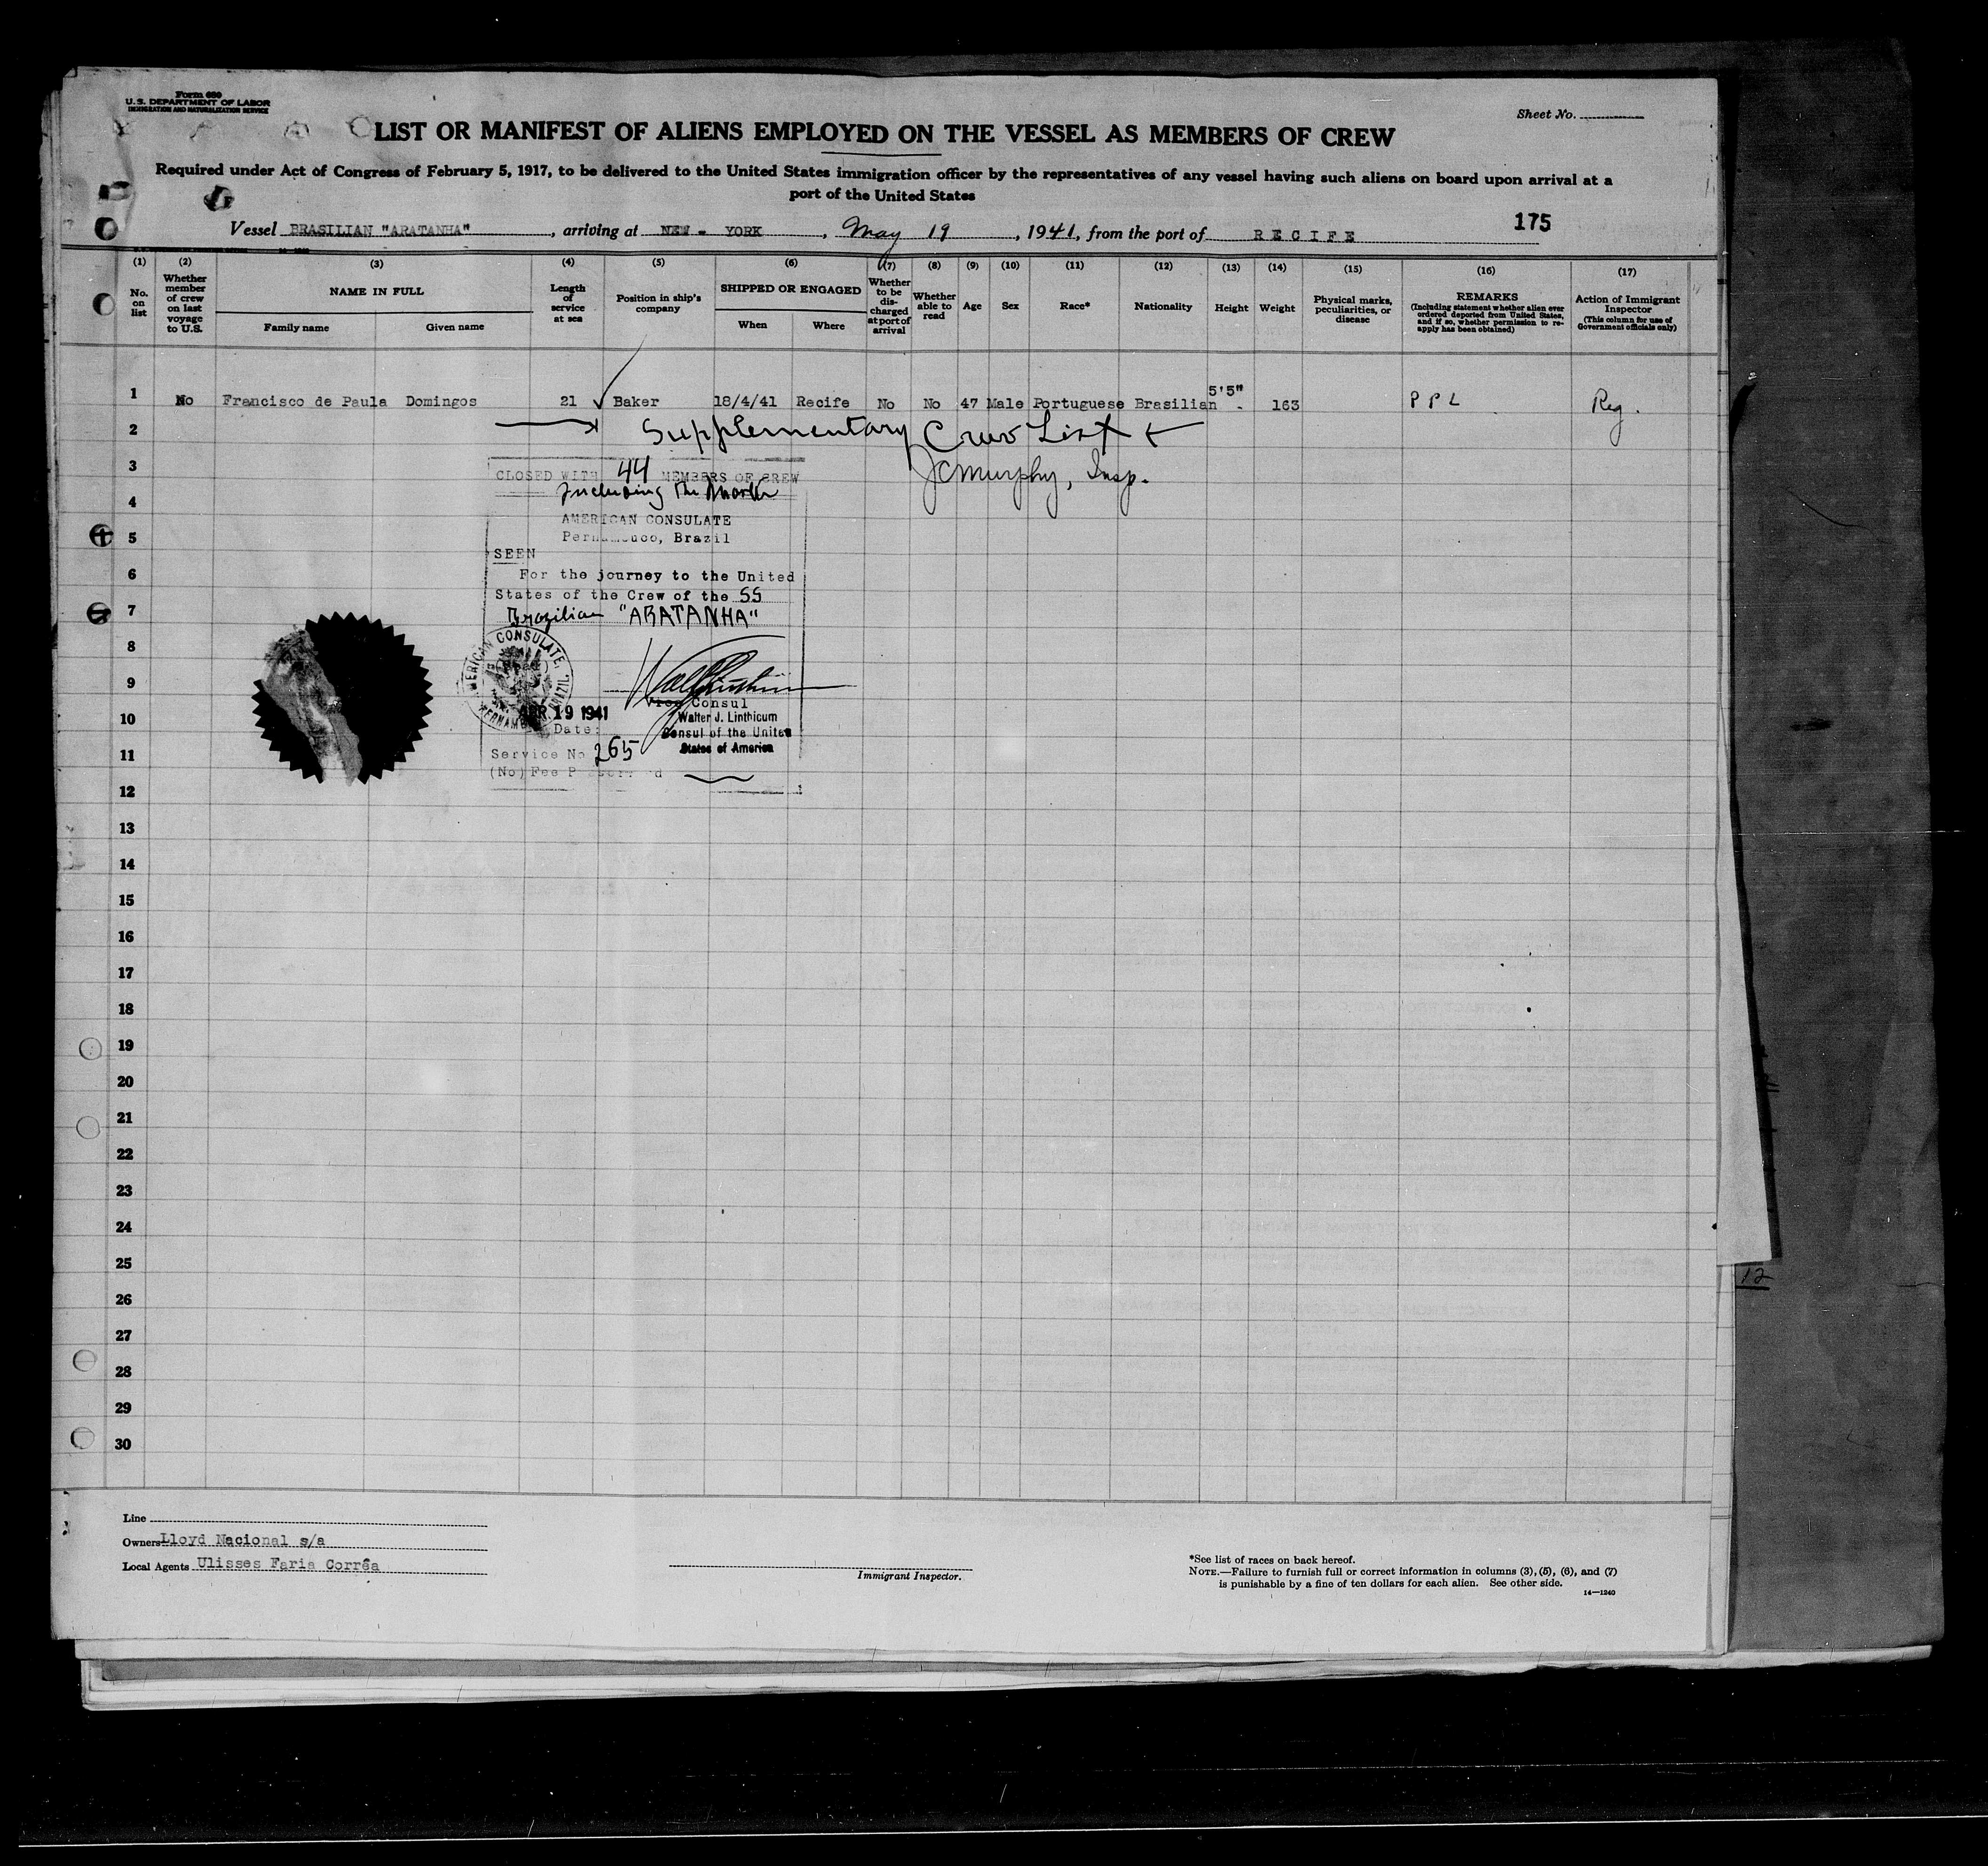 Form 680
U.S. DEPARTMENT OF LABOR
IMMIGRATION AND NATURALIZATION SERVICE
Sheet No.
LIST OR MANIFEST OF ALIENS EMPLOYED ON THE VESSEL AS MEMBERS OF CREW
Required under Act of Congress of February 5, 1917, to be delivered to the United States immigration officer by the representatives of any vessel having such aliens on board upon arrival at a
port of the United States
175
Vessel BRASILIAN "ARATANHA", arriving at NEW - YORK, May 19, 1941, from the port of RECIFE
(1) No. on list
(2) Whether member of crew on last voyage to U.S.
(3) NAME IN FULL
Family name Given name
(4) Length of service at sea
(5) Position in ship's company
(6) SHIPPED OR ENGAGED
When Where
(7) Whether to be discharged at port of arrival
(8) Whether able to read
(9) Age
(10) Sex
(11) Race*
(12) Nationality
(13) Height
(14) Weight
(15) Physical marks, peculiarities, or disease
(16) REMARKS
(Including statement whether alien ever ordered deported from United States, and if so, whether permission to re-apply has been obtained)
(17) Action of Immigrant Inspector
(This column for use of Government officials only)
1 No Francisco de Paula Domingos 21 Baker 18/4/41 Recife No No 47 Male Portuguese Brasilian 5'5" - 163 PPL Reg.
2 Supplementary Crew List
3 JCMurphy, Insp.
CLOSED WITH 44 MEMBERS OF CREW
Including The Master
4
AMERICAN CONSULATE
5 Pernambuco, Brazil
SEEN
6 For the journey to the United
States of the Crew of the SS
7 Brazilian "ARATANHA"
8
AMERICAN CONSULATE,
PERNAMBUCO, BRAZIL.
9
Vice Consul
10 APR 19 1941 Walter J. Linthicum
Date: Consul of the United
11 States of America
Service No 265
(No) Fee P
12
13
14
15
16
17
18
19
20
21
22
23
24
25
12
26
27
28
29
30
Line
Owners Lloyd Nacional s/a
Local Agents Ulisses Faria Corrêa
Immigrant Inspector.
*See list of races on back hereof.
NOTE.—Failure to furnish full or correct information in columns (3), (5), (6), and (7)
is punishable by a fine of ten dollars for each alien. See other side.
14—1240